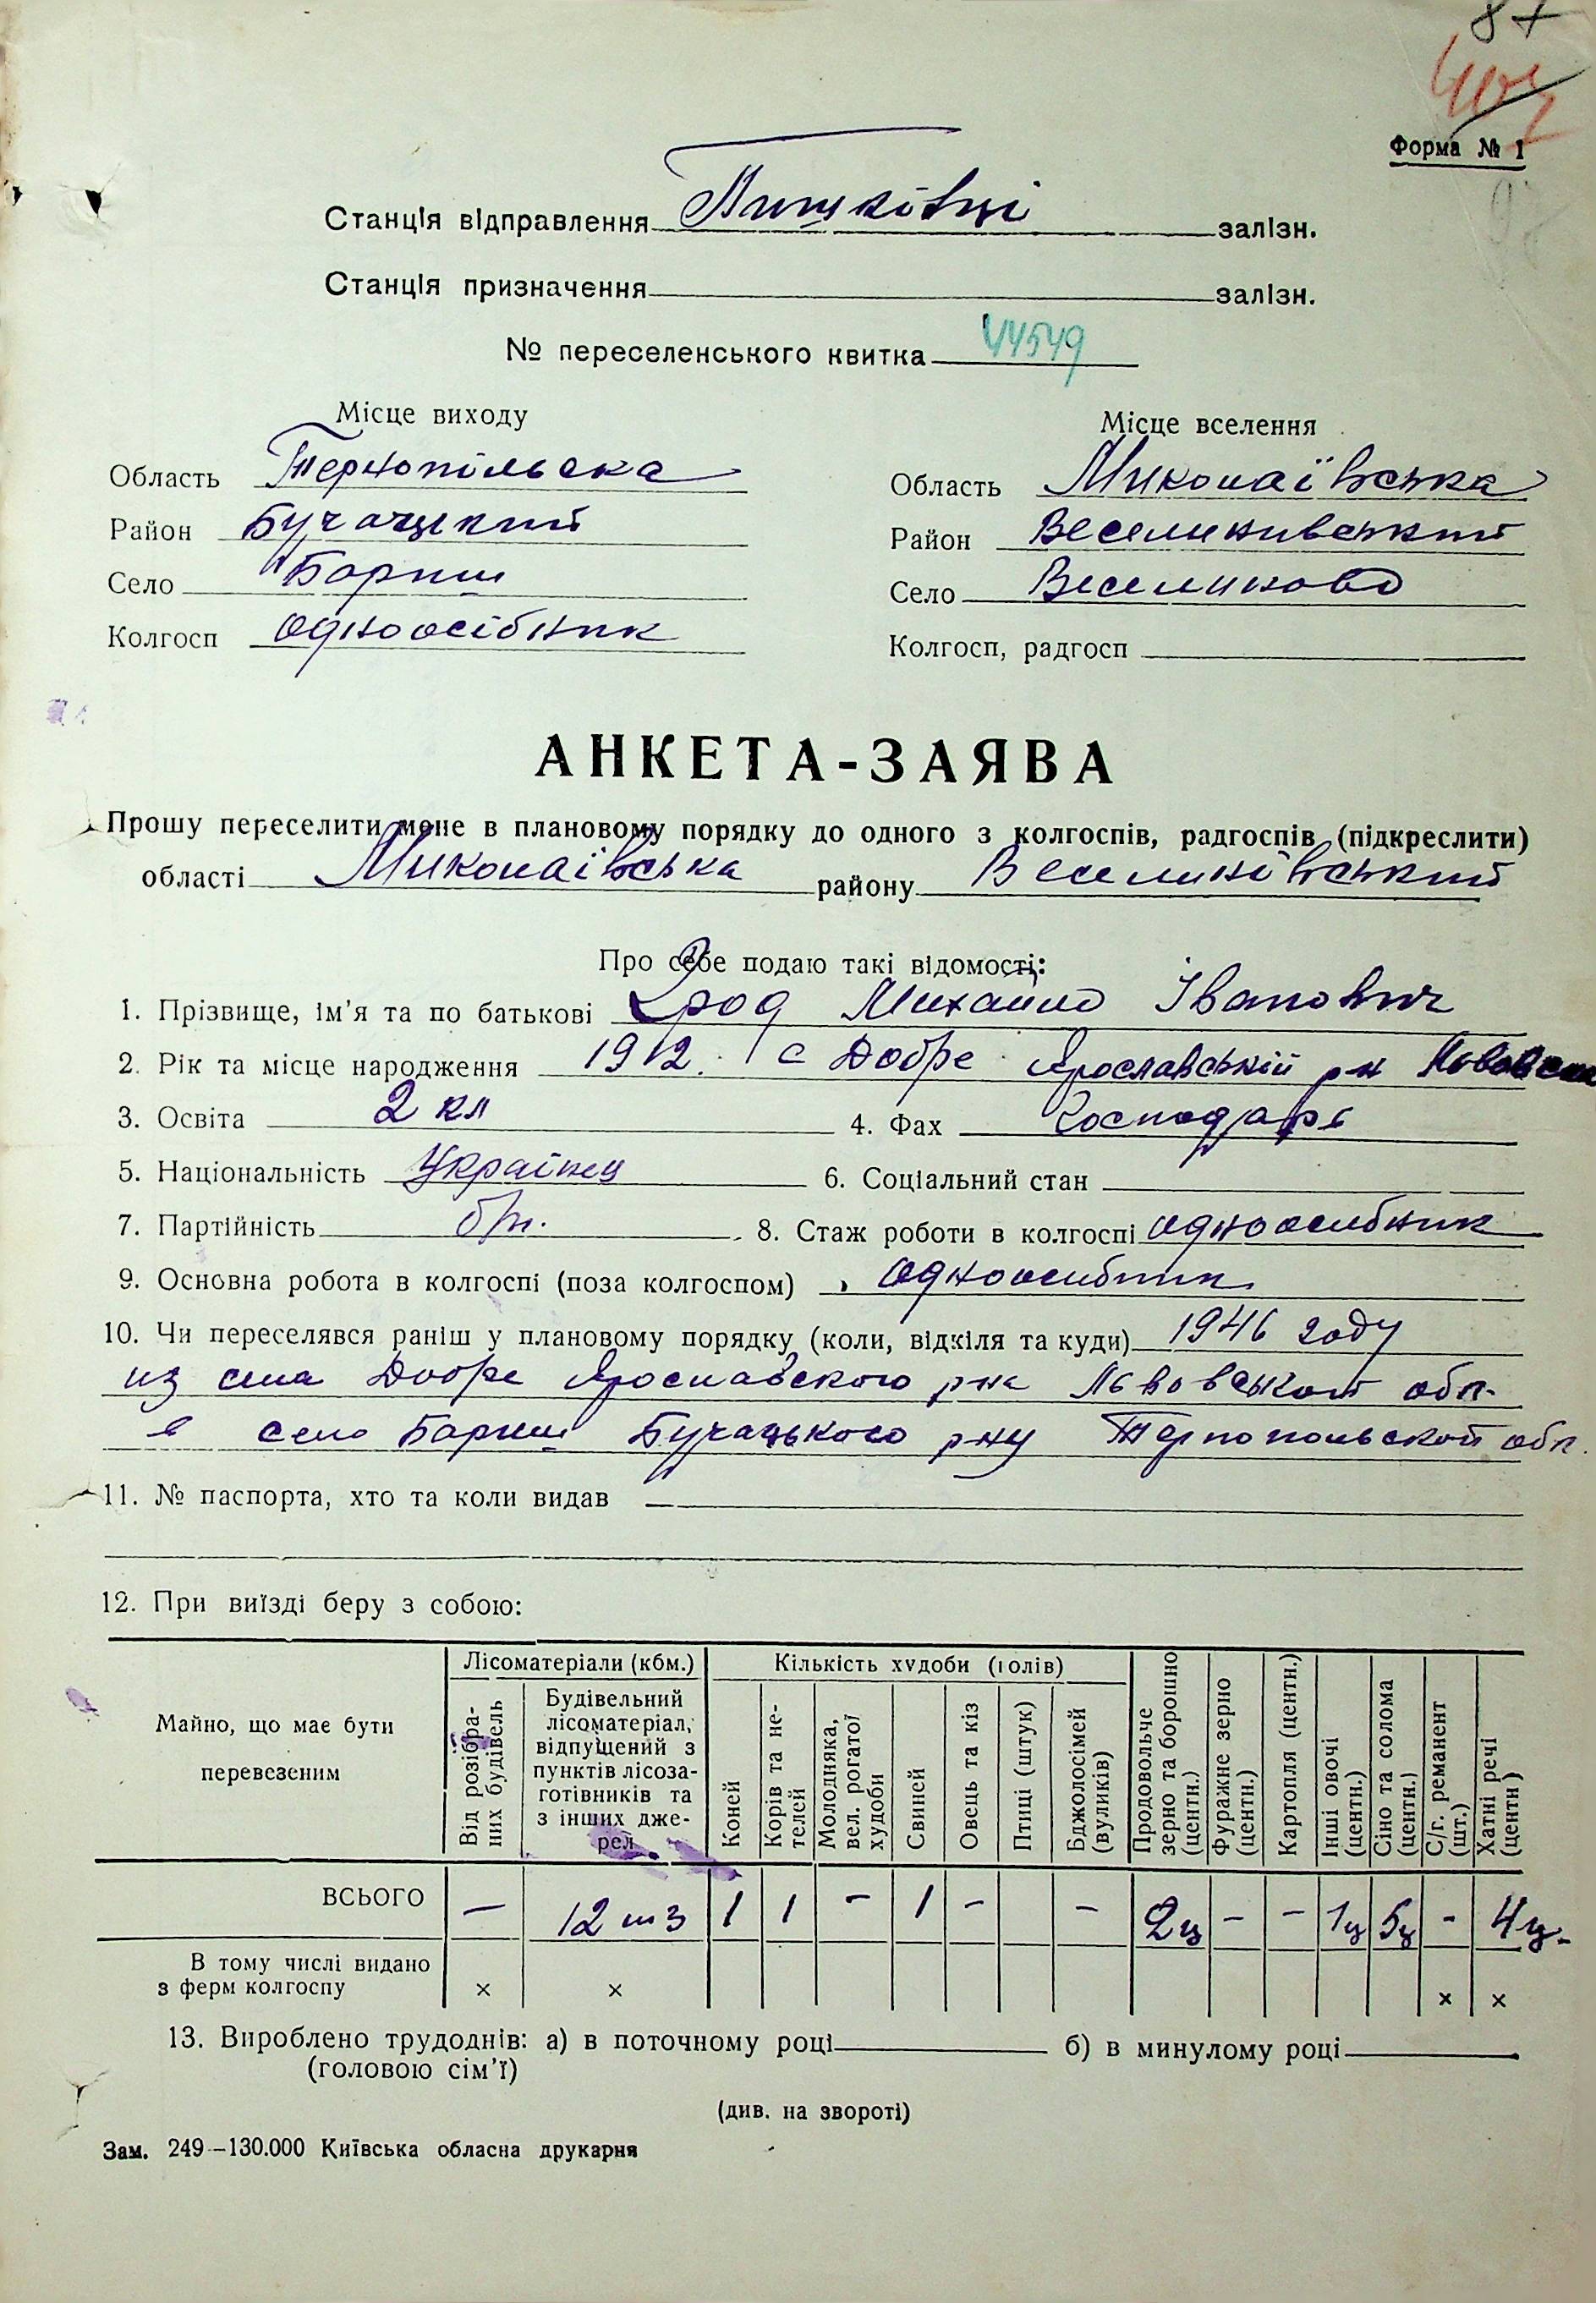 87
Форма № 1
Станція відправлення Пишківці залізн.
Станція призначення залізн.
№ переселенського квитка 44549
Місце виходу Місце вселення
Область Тернопільска Область Миколаївська
Район Бучацкий Район Веселинивський
Село Бариш Село Веселиново
Колгосп одноосібник Колгосп, радгосп
АНКЕТА-ЗАЯВА
Прошу переселити мене в плановому порядку до одного з колгоспів, радгоспів (підкреслити)
області Миколаївська району Веселинівський
Про себе подаю такі відомості:
1. Прізвище, ім'я та по батькові Михайло Іванович
2. Рік та місце народження 1912. с Добре Ярославській р-н
3. Освіта 2 кл 4. Фах Господарь
5. Національність Українец 6. Соціальний стан
7. Партійність б/п. 8. Стаж роботи в колгоспі одноосибник
9. Основна робота в колгоспі (поза колгоспом) одноосибник
10. Чи переселявся раніш у плановому порядку (коли, відкіля та куди) 1946 году
из села Добре Ярославского р-на Львовськой обл.
в село Бариш Бучацького р-ну Тернопольской обл.
11. № паспорта, хто та коли видав —
12. При виїзді беру з собою:
Майно, що має бути перевезеним
Лісоматеріали (кбм.)
Від розібраних будівель
Будівельний лісоматеріал, відпущений з пунктів лісозаготівників та з інших джерел
Кількість худоби (голів)
Коней
Корів та нетелей
Молодняка, вел. рогатої худоби
Свиней
Овець та кіз
Птиці (штук)
Бджолосімей (вуликів)
Продовольче зерно та борошно (центн.)
Фуражне зерно (центн.)
Картопля (центн.)
Інші овочі (центн.)
Сіно та солома (центн.)
С/г. реманент (шт.)
Хатні речі (центн)
ВСЬОГО — 12 м3 1 1 – 1 – – 2ц – – 1ц 5ц - 4ц.
В тому числі видано
з ферм колгоспу × × × ×
13. Вироблено трудоднів: а) в поточному році б) в минулому році
(головою сім'ї)
(див. на звороті)
Зам. 249—130.000 Київська обласна друкарня